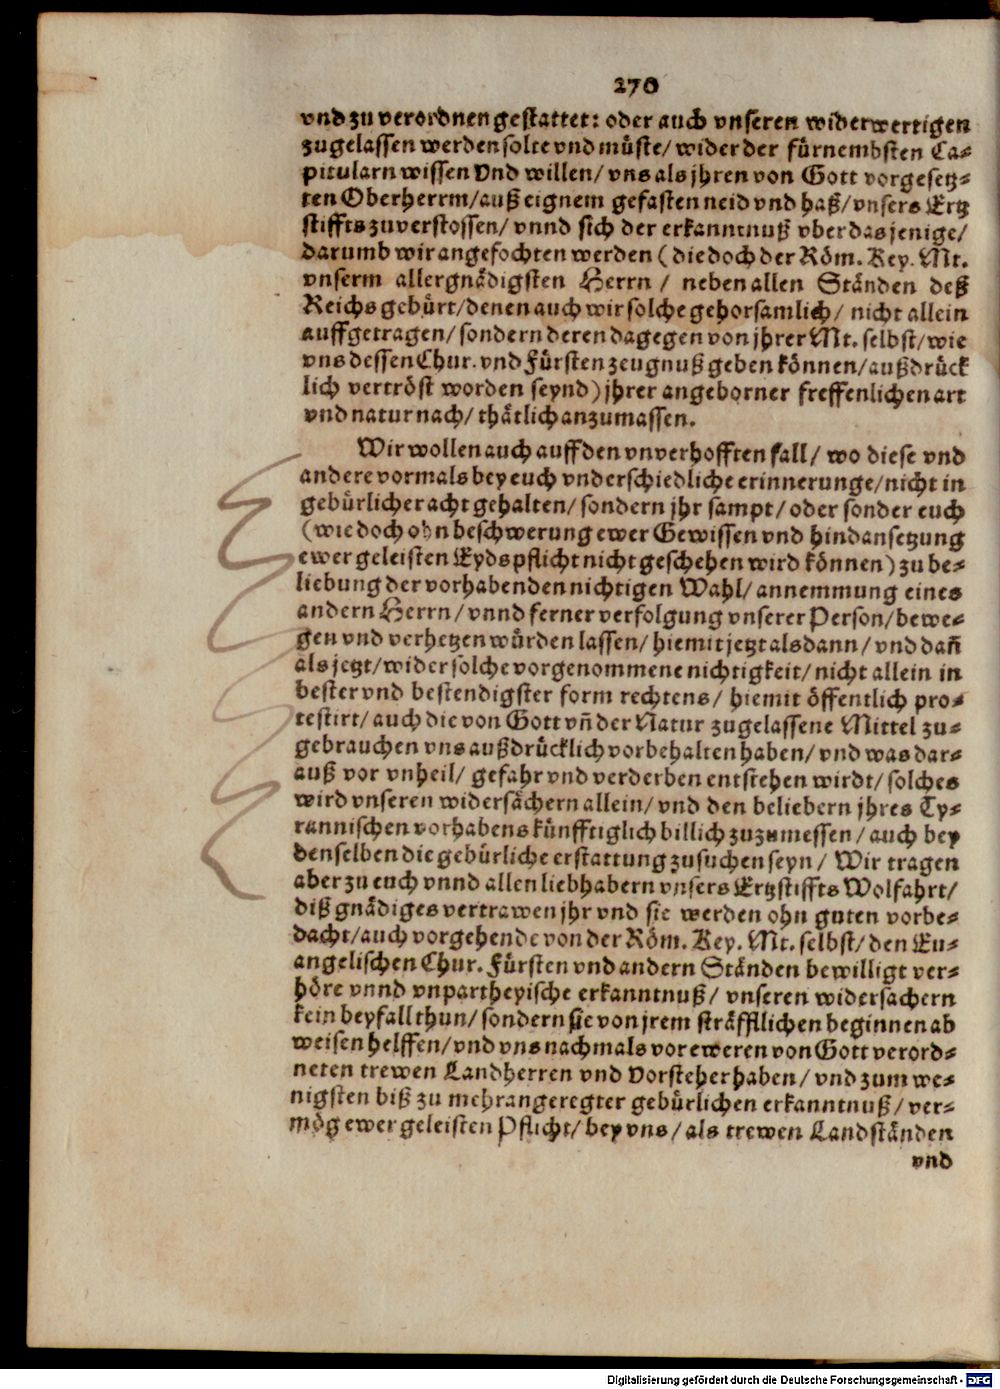 270
vnd zu verordnen gestattet: oder auch vnseren widerwertigen
zugelassen werden solte vnd müste/ wider der fürnembsten Ca-
pitularn wissen Vnd willen/ vns als jhren von Gott vorgesetz-
ten Oberherrm/ auß eignem gefasten neid vnd haß/ vnsers Ertz
stiffts zuverstossen/ vnnd sich der erkanntnuß vber das jenige/
darumb wir angefochten werden ( die doch der Röm. Key. Mt.
vnserm allergnädigsten Herrn / neben allen Ständen deß
Reichs gebürt/ denen auch wir solche gehorsamlich/ nicht allein
auffgetragen/ sondern deren dagegen von jhrer Mt. selbst/ wie
vns dessen Chur. vnd Fürsten zeugnuß geben können/ außdrück
lich vertröst worden seynd) jhrer angeborner freffenlichen art
vnd natur nach/ thätlich anzumassen.
Wir wollen auch auff den vnverhofften fall/ wo diese vnd
andere vormals bey euch vnderschiedliche erinnerunge/ nicht in
gebürlicher acht gehalten/ sondern jhr sampt/ oder sonder euch
(wie doch ohn beschwerung ewer Gewissen vnd hindansetzung
ewer geleisten Eydspflicht nicht geschehen wird können) zu be-
liebung der vorhabenden nichtigen Wahl/ annemmung eines
andern Herrn/ vnnd ferner verfolgung vnserer Person/ bewe-
gen vnd verhetzen würden lassen/ hiemit jetzt alsdann/ vnd dañ
als jetzt/ wider solche vorgenommene nichtigkeit/ nicht allein in
bester vnd bestendigster form rechtens/ hiemit öffentlich pro-
testirt/ auch die von Gott vñ der Natur zugelassene Mittel zu-
gebrauchen vns außdrücklich vorbehalten haben/ vnd was dar-
auß vor vnheil/ gefahr vnd verderben entstehen wirdt/ solches
wird vnseren widersächern allein/ vnd den beliebern jhres Ty-
rannischen vorhabens künfftiglich billich zuzumessen/ auch bey
denselben die gebürliche erstattung zusuchen seyn/ Wir tragen
aber zu euch vnnd allen liebhabern vnsers Ertzstiffts Wolfahrt/
diß gnädiges vertrawen jhr vnd sie werden ohn guten vorbe-
dacht/ auch vorgehende von der Röm. Key. Mt. selbst/ den Eu-
angelischen Chur. Fürsten vnd andern Ständen bewilligt ver-
höre vnnd vnpartheyische erkanntnuß/ vnseren widersachern
kein beyfall thun/ sondern sie von jrem sträffllichen beginnen ab
weisen helffen/ vnd vns nachmals vor eweren von Gott verord-
neten trewen Landherren vnd Vorsteher haben/ vnd zum we-
nigsten biß zu mehrangeregter gebürlichen erkanntnuß/ ver-
mög ewer geleisten Pflicht/ bey vns/ als trewen Landständen
vnd
Digitalisierung gefördert durch die Deutsche Forschungsgemeinschaft - DFG